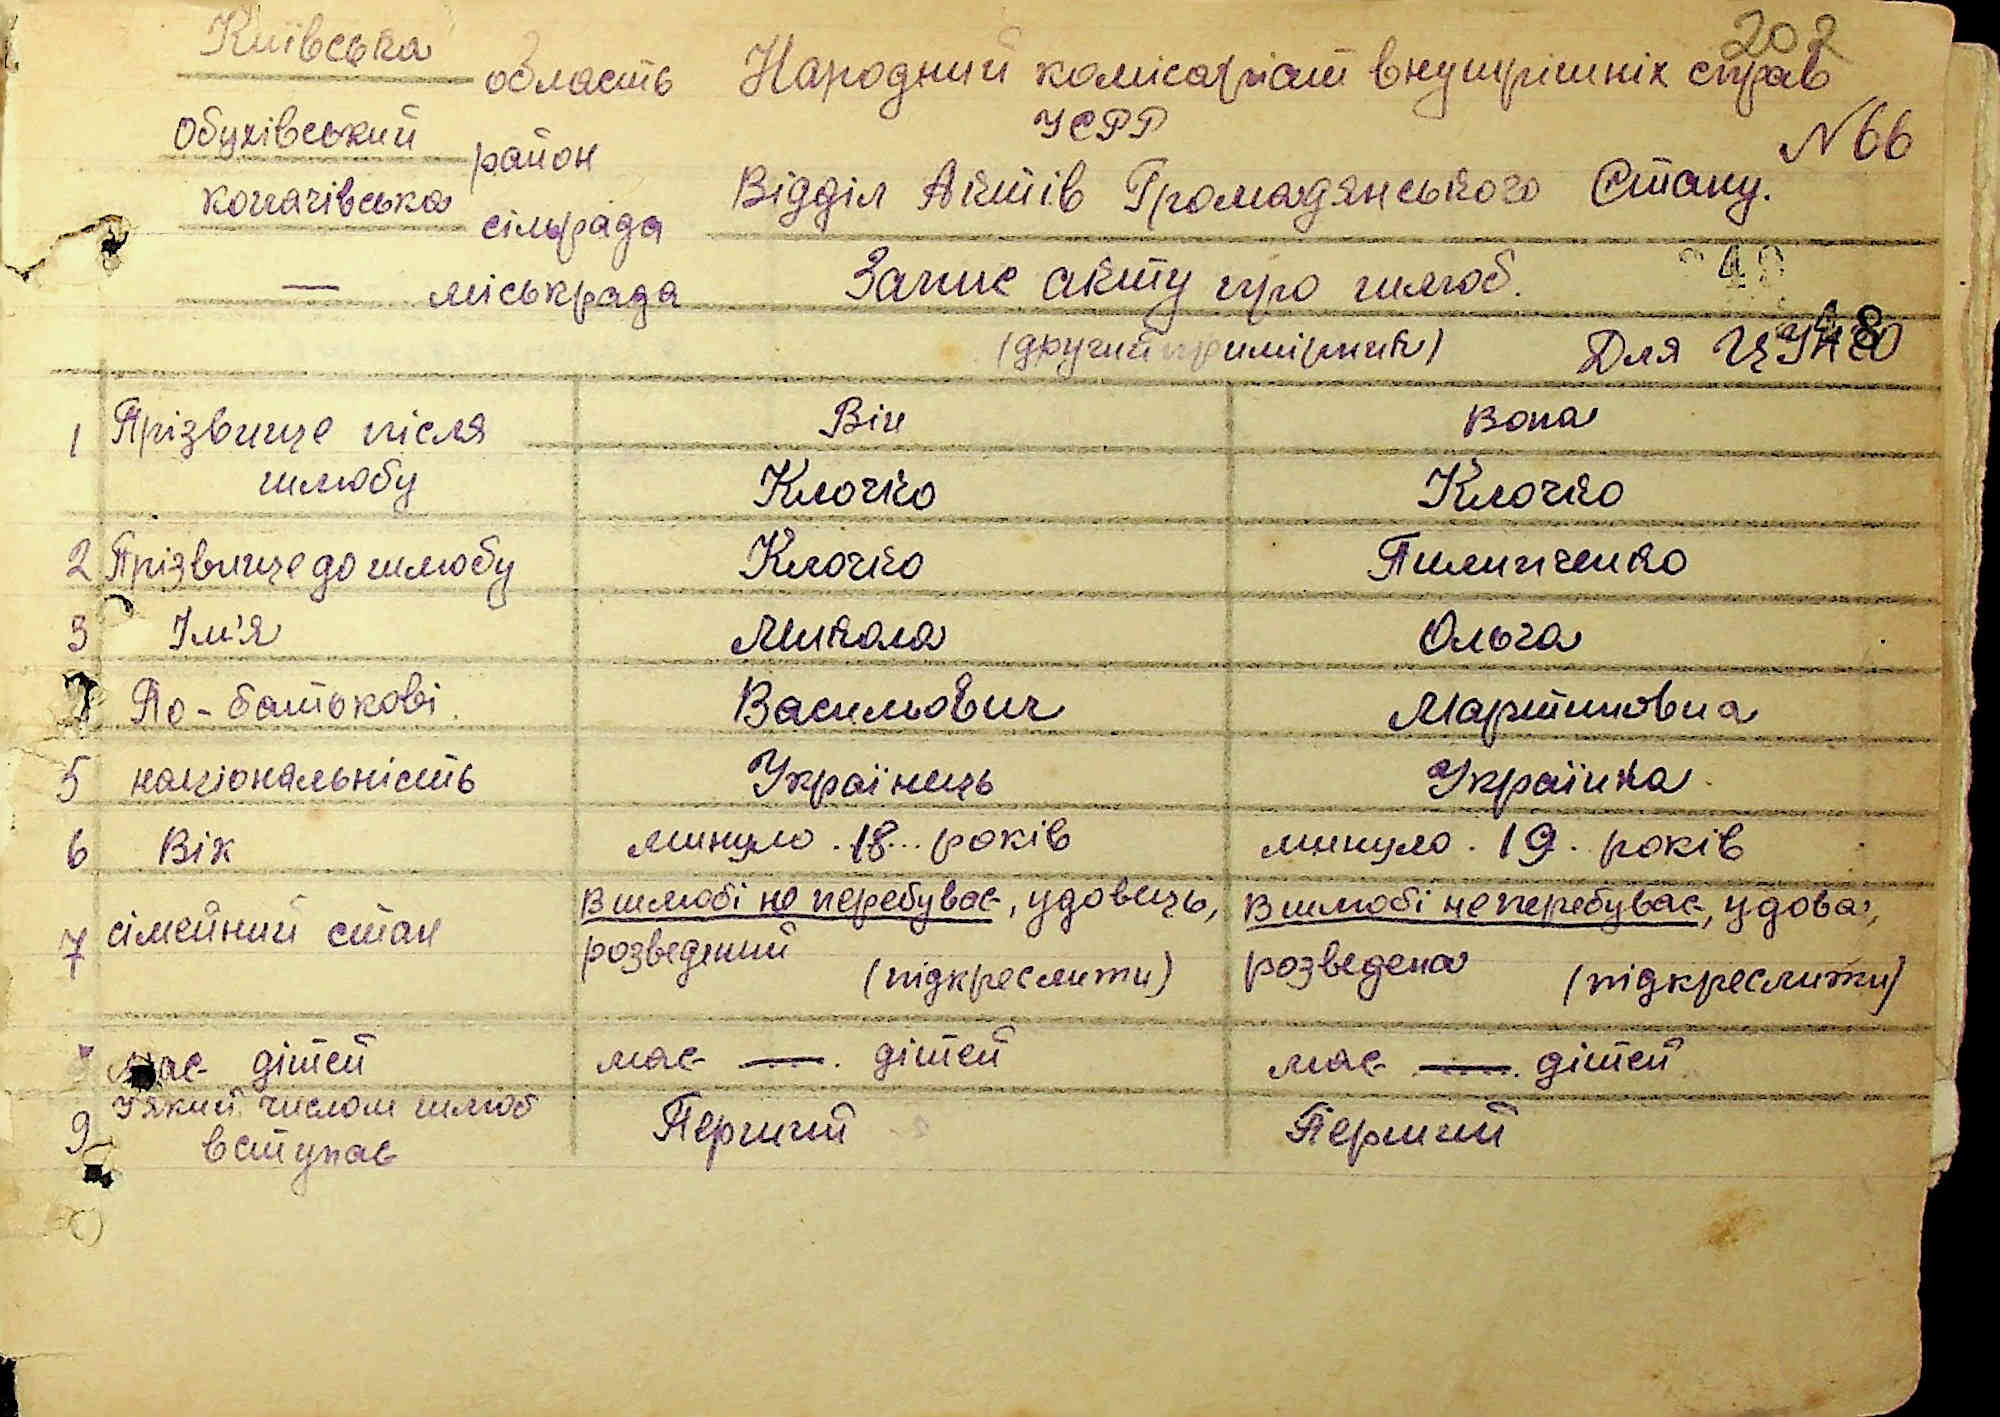 202
Київська область
Народний комісаріат внутрішніх справ
УСРР
Обухівський район
N 66
копачівська сільрада
Відділ Актів Громадянського Стану.
— міськрада
Запис акту про шлюб.
(другий примірник) Для
1 Прізвище після шлюбу
Він Вона
Клочко Клочко
2 Прізвище до шлюбу Клочко Пилипченко
3 Ім'я Микола Ольга
По-батькові Васильович Мартиновна
5 національність Українець Українка
6 Вік минуло 18 років минуло 19 років
7 сімейний стан
В шлюбі не перебуває, удовець, В шлюбі не перебуває, удова,
розведений (підкреслити) розведена (підкреслити)
має дітей має — дітей має — дітей
9 У який числом шлюб
вступає
Перший Перший